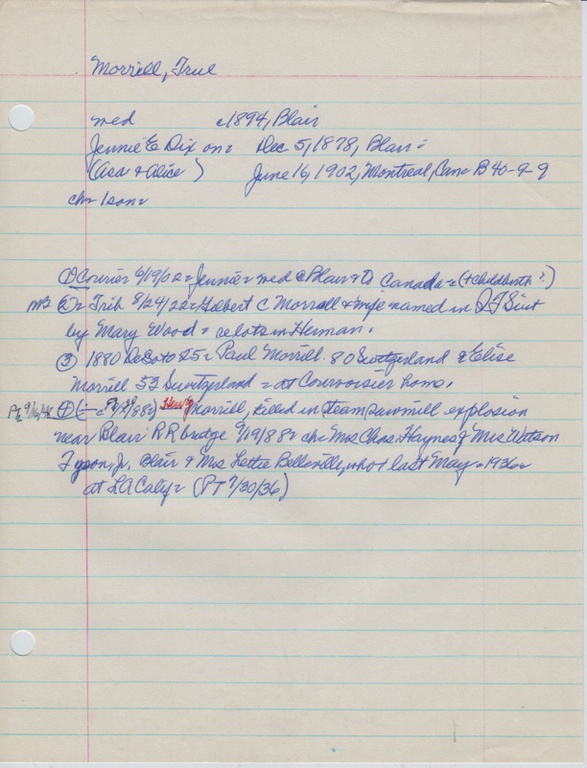 Morrill, True
med c1894, Blair
Jennie E Dix on= Dec 5, 1878, Blair=
(Asa & Alice) June 16, 1902, Montreal, Can= B40-9-9
ch= 1 son=
① Courier 6/19/02= Jennie= med @ Blair & to Canada= (+ childbirth?)
② = Trib 8/24/22= & wife named in Q T Suit
by Mary Wood= re lots in Herman.
③ 1880 DeSoto 25= Paul Morrill 80 Switzerland & Elise
Morrill 53 Switzerland= at Courvoisier home.
④ Henry Morrill, killed in steam sawmill explosion
near Blair RR bridge 9/19/88= ch= Mrs Chas. Haynes & Mrs Watson
Tyson, Jr, Blair & Mrs Lettie Belleville, who + last May= 1936=
at LA Calif= (PT 7/30/36)